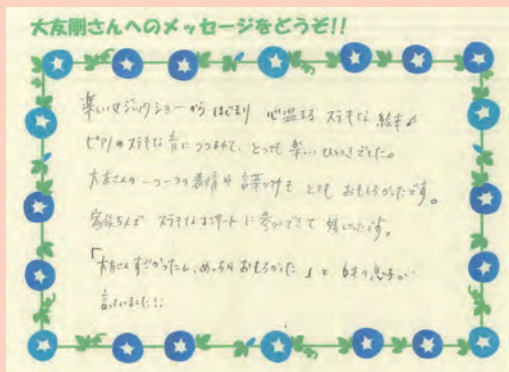 大友剛さんへのメッセージをどうぞ!!
楽しいマジックショーからはじまり 心温まる ステキな 絵本♪
ピアノのステキな音につつまれて、とっても楽しいひとときでした。
大友さんの一つ一つの表情や言葉がけも とても おもしろかったです。
家族5人で ステキなコンサートに参加できて 嬉しかったです。
「大友さんすごかったし、めっちゃおもろかった」と 6才の息子が
言っていました!!